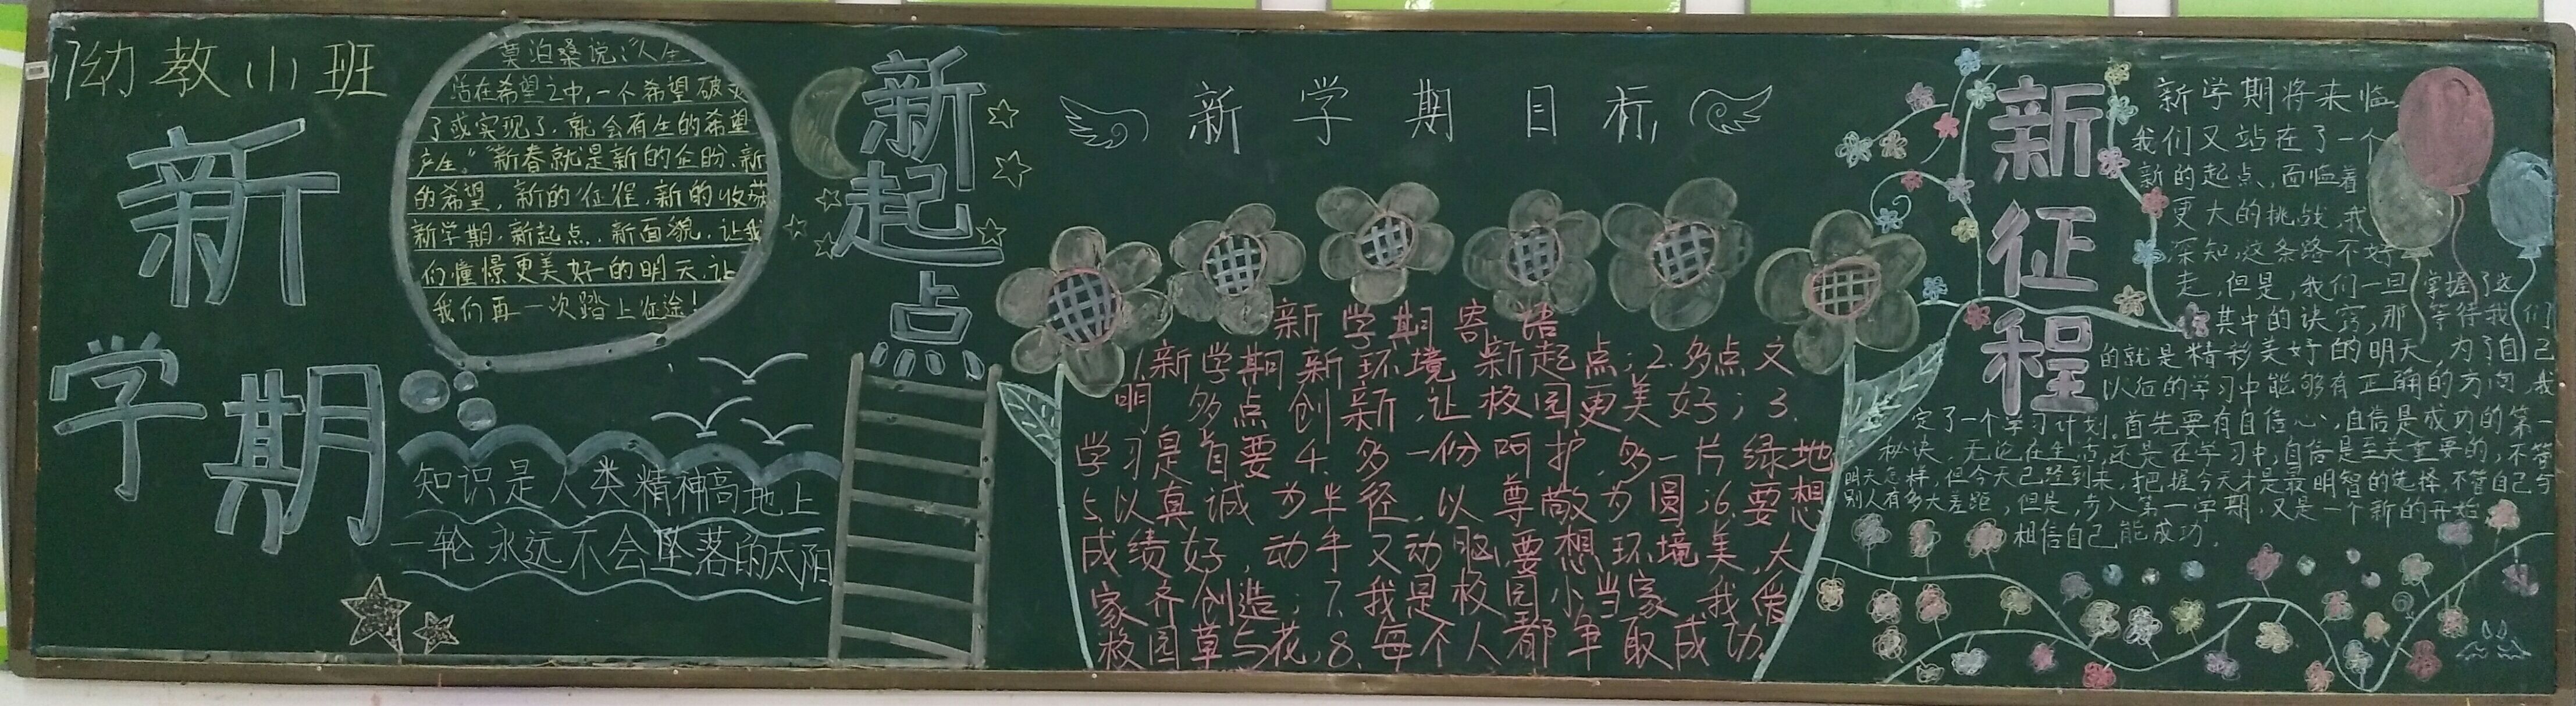 幼教小班
新
学期
莫泊桑说:“人生
活在希望之中,一个希望破灭
了或实现了,就会有生的希望
产生。”新春就是新的企盼、新
的希望,新的征程,新的收获
新学期,新起点,新面貌,让我
们憧憬更美好的明天,让
我们再一次踏上征途!
知识是人类精神高地上
一轮永远不会坠落的太阳
新
起
点
新学期目标
新学期寄语
1.新学期新环境新起点;2.多点文
明多点创新,让校园更美好;3.
学习是首要4.多一份呵护,多一片绿地
5.以真诚为半径,以尊敬为圆;6.要想
成绩好,动手又动脑,要想环境美,大
家齐创造;7.我是校园小当家,我爱
校园草与花,8.每个人都争取成功.
新
征
程
新学期将来临,
我们又站在了一个
新的起点,面临着
更大的挑战,我
深知,这条路不好
走,但是,我们一旦掌握了这
其中的诀窍,那等待我们
的就是精彩美好的明天,为了自己
以后的学习中能够有正确的方向,我
定了一个学习计划.首先要有自信心,自信是成功的第一
秘诀,无论在生活还是在学习中,自信是至关重要的,不管
明天怎样,但今天已经到来,把握今天才是最明智的选择,不管自己与
别人有多大差距,但是,步入第一学期,又是一个新的开始
相信自己能成功.